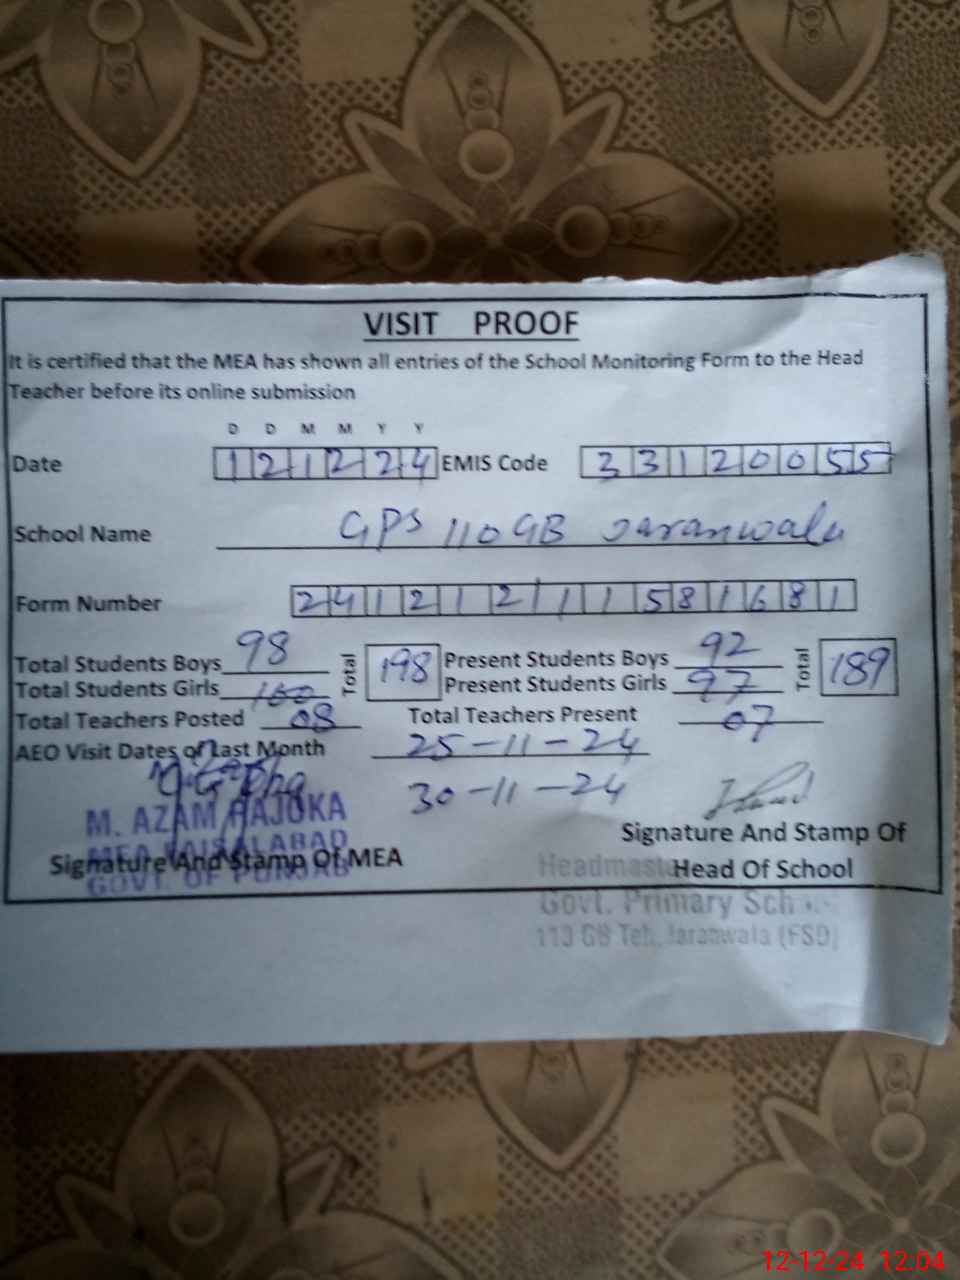 VISIT PROOF
It is certified that the MEA has shown all entries of the School Monitoring Form to the Head
Teacher before its online submission
D D M M Y Y
Date 121224 EMIS Code 33120055
School Name GPS 110 GB Jaranwala
Form Number 24121211581681
Total Students Boys 98 Total 198 Present Students Boys 92 Total 189
Total Students Girls 100 Present Students Girls 97
Total Teachers Posted 08 Total Teachers Present 07
AEO Visit Dates of Last Month 25-11-24
30-11-24
M. AZAM RAJOKA
MEA FAISALABAD
GOVT. OF PUNJAB
Signature And Stamp Of MEA
Signature And Stamp Of
Head Of School
Govt. Primary
110 GB Teh. Jaranwala (FSD)
12-12-24 12:04